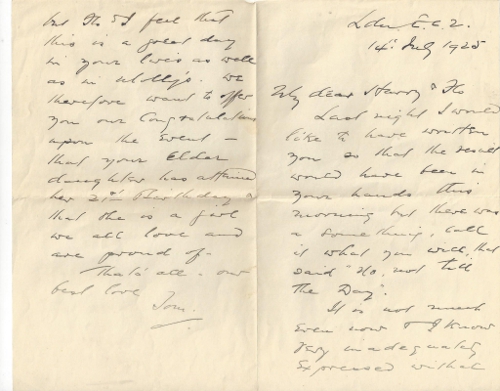 Ldn E.C.2.
14th July 1925
My dear Harry & Flo
Last night I would
like to have written
you so that the result
would have been in
your hands this
morning but there was
a something, call
it what you will, that
said "No, not till
the Day".
It is not much
even now & I know
very inadequately
expressed with it
but Flo & I feel that
this is a great day
in your lives as well
as in Molly's. We
therefore want to offer
you our Congratulations
upon the event –
that your Elder
daughter has attained
her 21st Birthday &
that she is a girl
we all love and
are proud of.
That's all. our
best love
Tom.